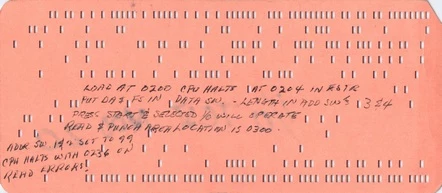 LOAD AT 0200 CPU HALTS AT 0204 IN
PUT DA & FS IN DATA SW. - LENGTH IN ADD SWS 3 & 4
PRESS START & SELECTED I/O WILL OPERATE
READ & PUNCH AREA LOCATION IS 0300.
ADDR SW 1 & 2 SET TO 99
CPU HALTS WITH 0236 ON
READ ERRORS!